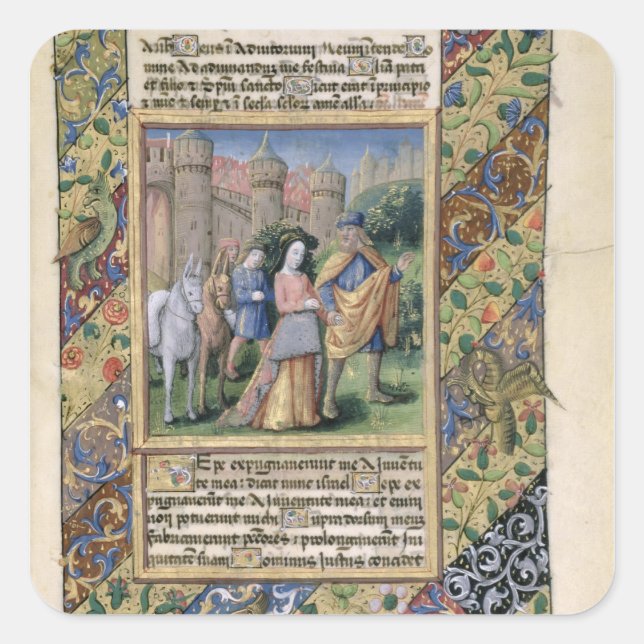 eus i Adiutorium Meum intende
mne Ad adiuvandum me festina
et filio & spui sancto Sicut erat i principio
& nuc & semp & i secla sclor ame alla
Epe expugnaverunt me A Juventu
te mea: dicat nunc israel epe ex
pugnaverunt me A Juventute mea: et enim
non potuerunt michi Supra dorsum meum
fabricaverunt peccatores: prolongaverunt Ini
quitatem suam ominus Justus concidet